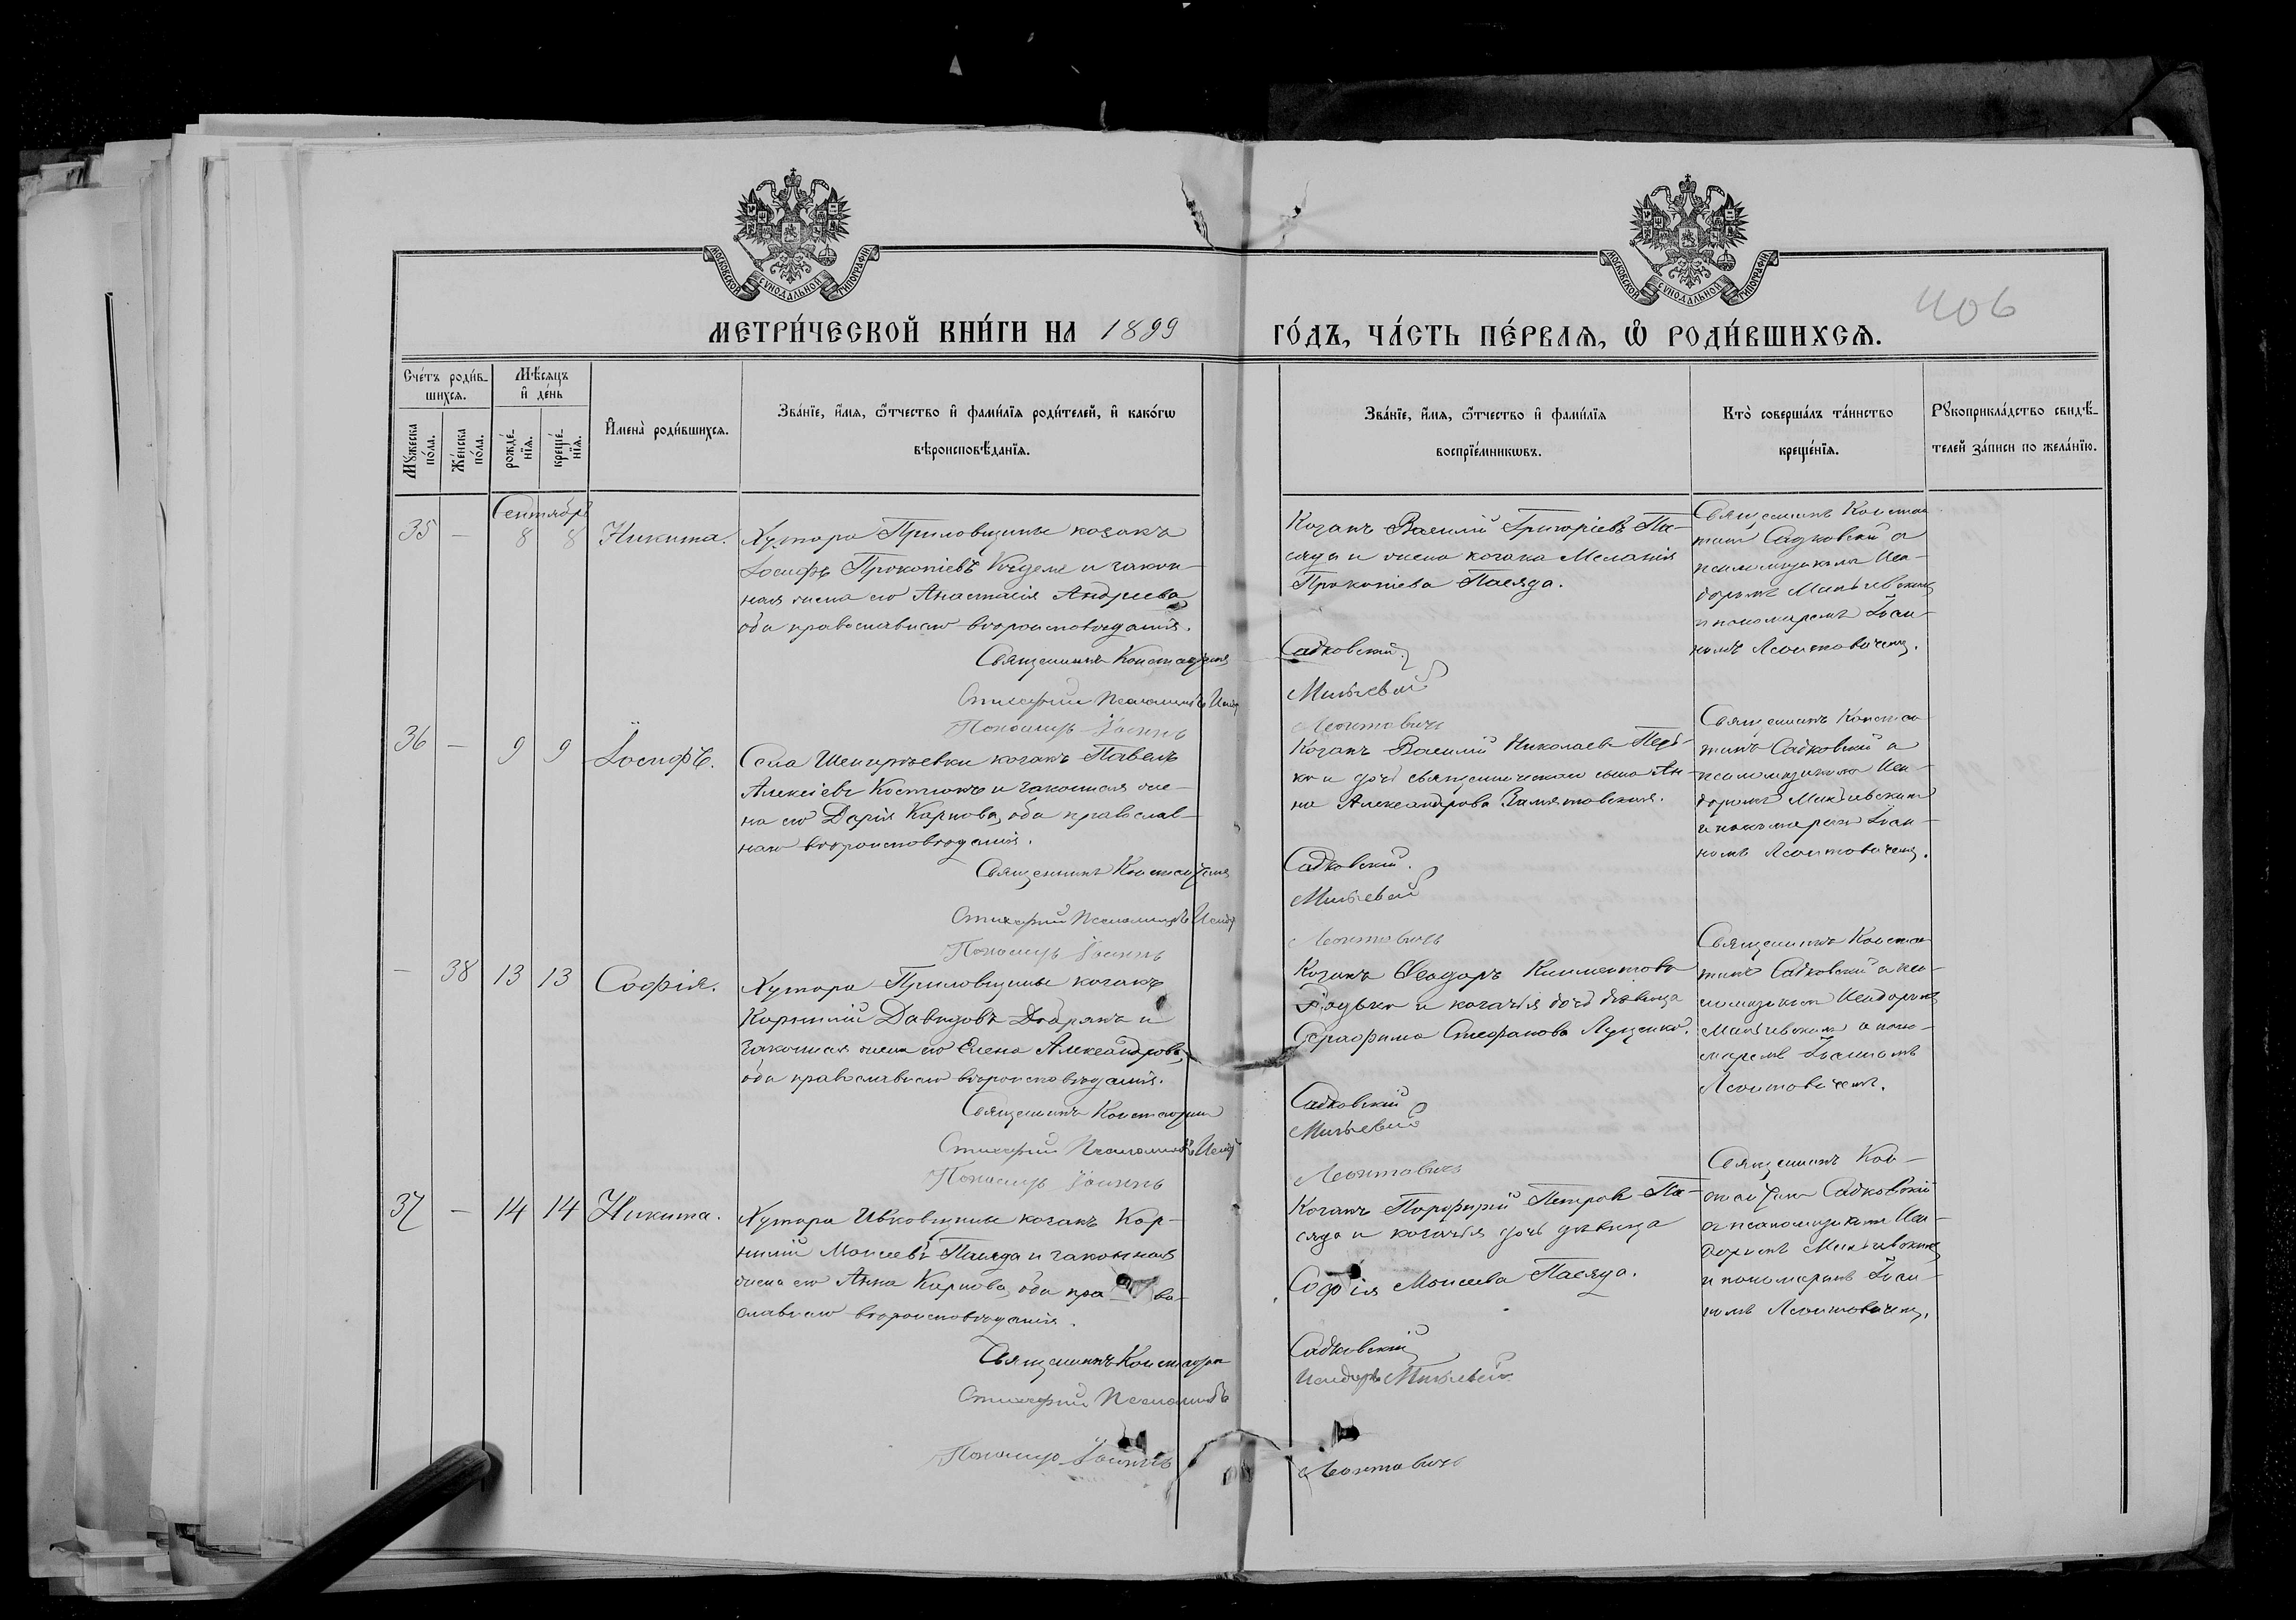 406
МОСКОВСКОЙ СѴНОДАЛЬНОЙ ТИПОГРАФІИ
МОСКОВСКОЙ СѴНОДАЛЬНОЙ ТИПОГРАФІИ
МЕТРИ́ЧЕСКОЙ КНИ́ГИ НА 1899
ГО́ДЪ, ЧА́СТЬ ПЕ́РВАѦ, Ѡ҆ РОДИ́ВШИХСѦ.
Сче́тъ роди́в-
шихсѧ.
Мѣ́сѧцъ
и҆ де́нь
Мꙋ́жеска
по́ла.
Же́нска
по́ла.
рожде́-
нїѧ.
креще́-
нїѧ.
И҆мена̀ роди́вшихсѧ.
Зва́нїе, и҆́мѧ, ѻ҆́тчество и҆ фами́лїѧ роди́телей, и҆ како́гѡ
вѣроисповѣ́данїѧ.
Зва́нїе, и҆́мѧ, ѻ҆́тчество и҆ фами́лїѧ
воспрїе́мникѡвъ.
Кто̀ соверша́лъ та́инство
креще́нїѧ.
Рꙋкоприкла́дство свидѣ́-
телей за́писи по жела́нїю.
Сентябрь
35 — 8 8 Никита.
Хутора Приловщины козакъ
Іосифъ Прокопіевъ и закон-
ная жена его Анастасія Андреева,
оба православнаго вѣроисповѣданія.
Священникъ Константинъ
Стихарный Псаломщикъ Исид
Пономарь Іоаннъ
Козакъ Василій Григоріевъ Па-
сяда и жена козака Меланія
Прокопіева Пасяда.
Садковскій
Леонтовичъ
Священникъ Констан-
тинъ Садковскій съ
псаломщикомъ Иси-
доромъ
и пономаремъ Іоан-
номъ Леонтовичемъ.
36 — 9 9 Іосифъ.
Села козакъ Павелъ
Алексіевъ Костюкъ и законная же-
на его Дарія Карпова, оба православ-
наго вѣроисповѣданія.
Священникъ Константинъ
Стихарный Псаломщикъ Исид
Пономарь Іоаннъ
Козакъ Василій Николаевъ
ко и дочь священническаго сына Ан-
на Александрова
Садковскій.
Леонтовичъ
Священникъ Констан-
тинъ Садковскій съ
псаломщикомъ Иси-
доромъ
и пономаремъ Іоан-
номъ Леонтовичемъ.
— 38 13 13 Софія.
Хутора Приловщины козакъ
Корнилій Давидовъ и
законная жена его Елена Александрова,
оба православнаго вѣроисповѣданія.
Священникъ Константинъ
Стихарный Псаломщикъ Исид
Пономарь Іоаннъ
Козакъ Ѳеодоръ Климентовъ
и козачья дочь дѣвица
Серафима Стефанова Луценко.
Садковскій
Леонтовичъ
Священникъ Констан-
тинъ Садковскій съ пса-
ломщикомъ Исидоромъ
и поно-
маремъ Іоанномъ
Леонтовичемъ.
37 — 14 14 Никита.
Хутора Ивковщины козакъ Кор-
нилій Моисеевъ Пасяда и законная
жена его Анна Карпова, оба пра во-
славнаго вѣроисповѣданія.
Священникъ Константинъ
Стихарный Псаломщикъ
Пономарь Іоаннъ
Козакъ Порфирій Петровъ Па-
сяда и козачья дочь дѣвица
Софія Моисеева Пасяда.
Садковскій
Исидоръ
Леонтовичъ
Священникъ Кон-
стантинъ Садковскій
съ псаломщикомъ Иси-
доромъ
и пономаремъ Іоан-
номъ Леонтовичемъ.